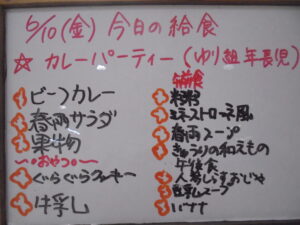 6/10(金) 今日の給食
☆ カレーパーティー (ゆり組 年長児)
ビーフカレー
春雨サラダ
果物
〜おやつ〜
ぐらぐらクッキー
牛乳
午前食
粥
ミネストローネ風
春雨スープ
きゅうりの和えもの
午後食
人参しらすおじや
豆乳スープ
バナナ